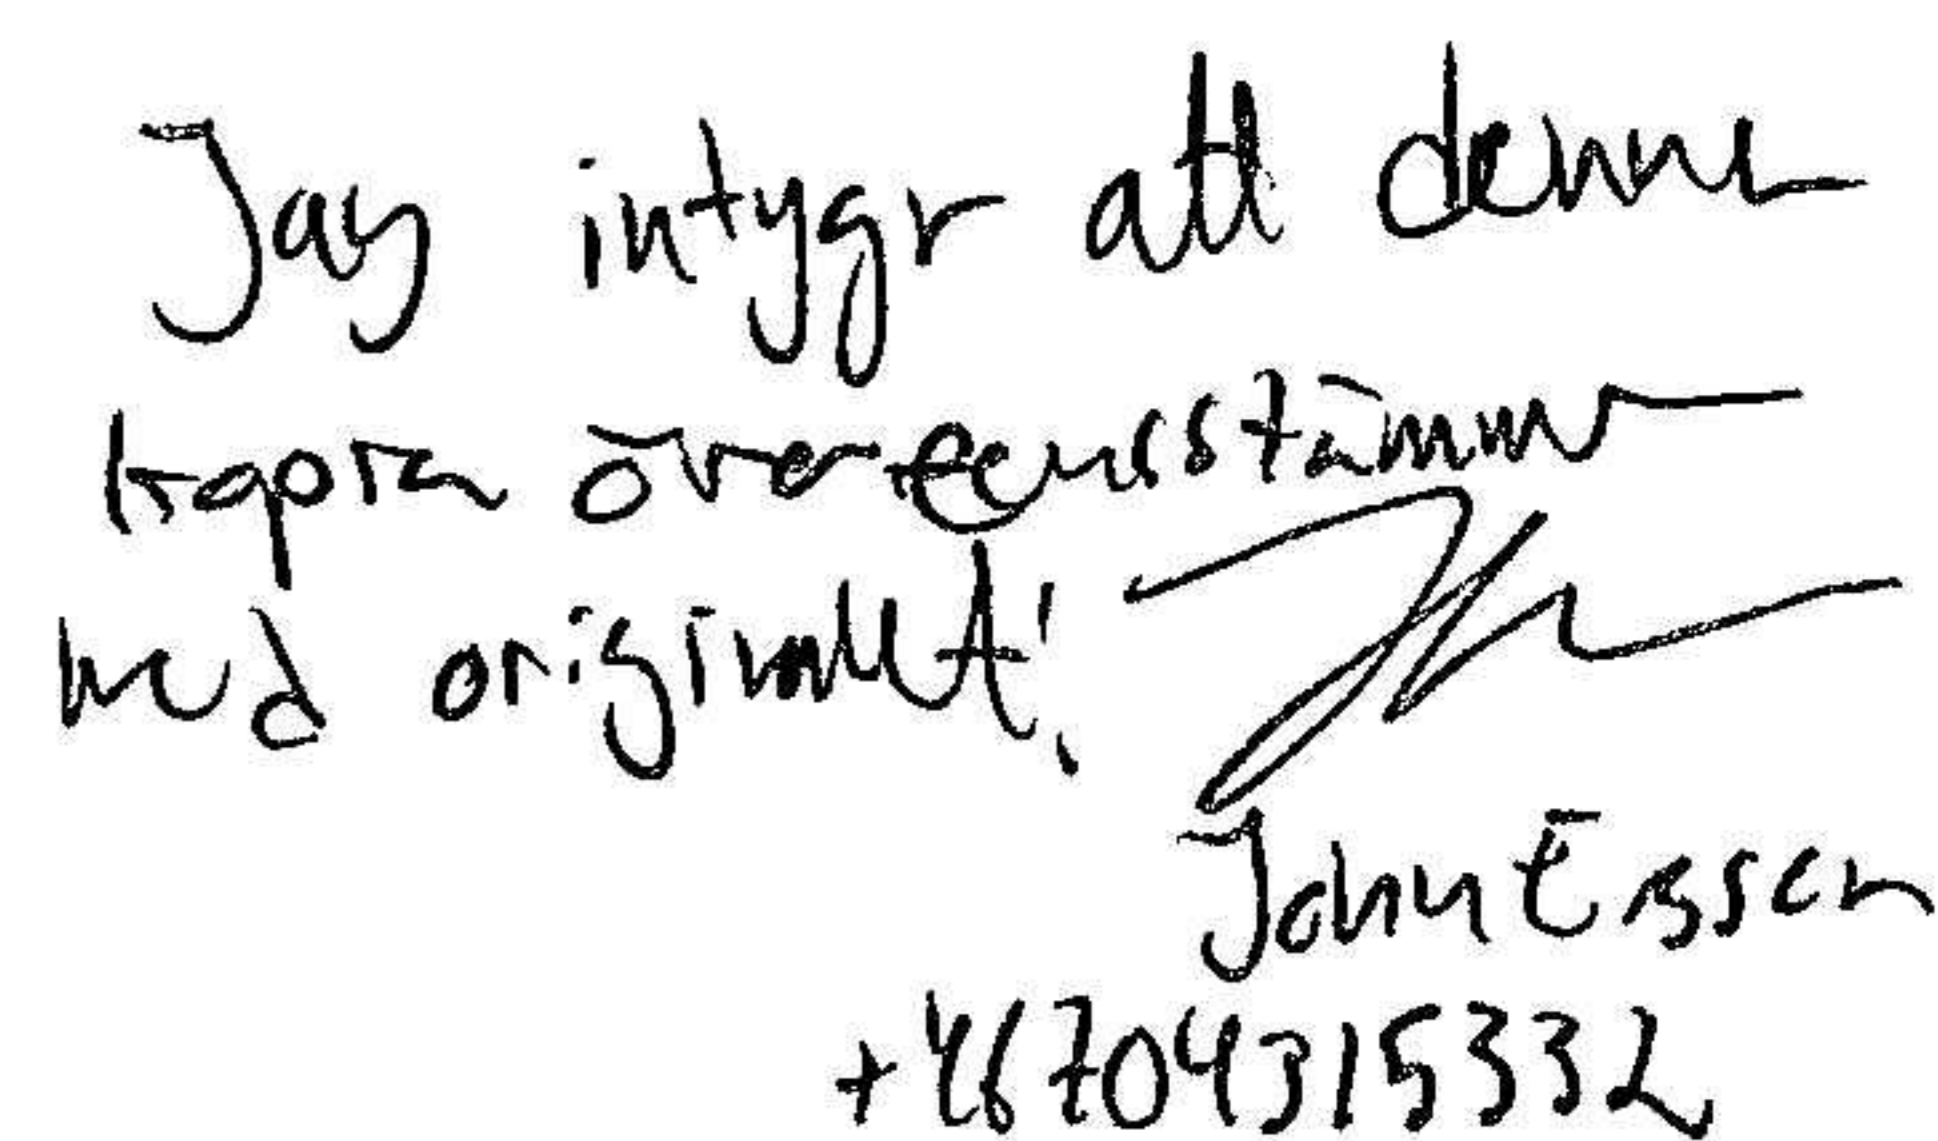 Jag intygr att denna
kopia överensstämmer
med originalet!
John Essen
+46704315332